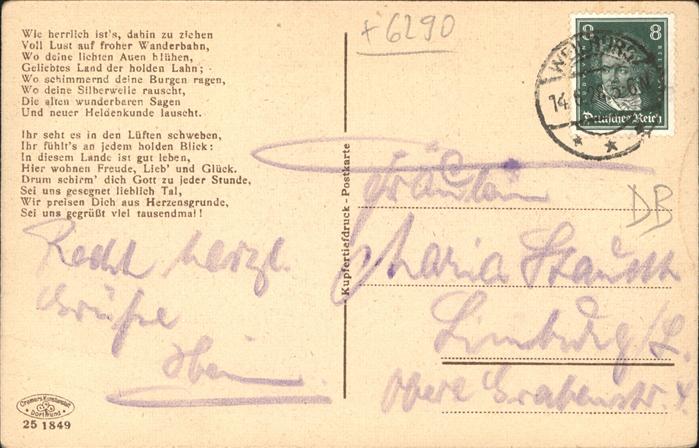 Wie herrlich ist's, dahin zu ziehen
Voll Lust auf froher Wanderbahn,
Wo deine lichten Auen blühen,
Geliebtes Land der holden Lahn;
Wo schimmernd deine Burgen ragen,
Wo deine Silberwelle rauscht,
Die alten wunderbaren Sagen
Und neuer Heldenkunde lauscht.
Ihr seht es in den Lüften schweben,
Ihr fühlt's an jedem holden Blick:
In diesem Lande ist gut leben,
Hier wohnen Freude, Lieb' und Glück.
Drum schirm' dich Gott zu jeder Stunde,
Sei uns gesegnet lieblich Tal,
Wir preisen Dich aus Herzensgrunde,
Sei uns gegrüßt viel tausendmal!
Recht herzl.
Grüße
Cramers Kunstanstalt
Dortmund
25 1849
Kupfertiefdruck - Postkarte
+6290
8 8
Deutsches Reich
14.6.28.5-6N
DB
Fräulein
Maria
Limburg/L.
Obere Grabenstr. 4